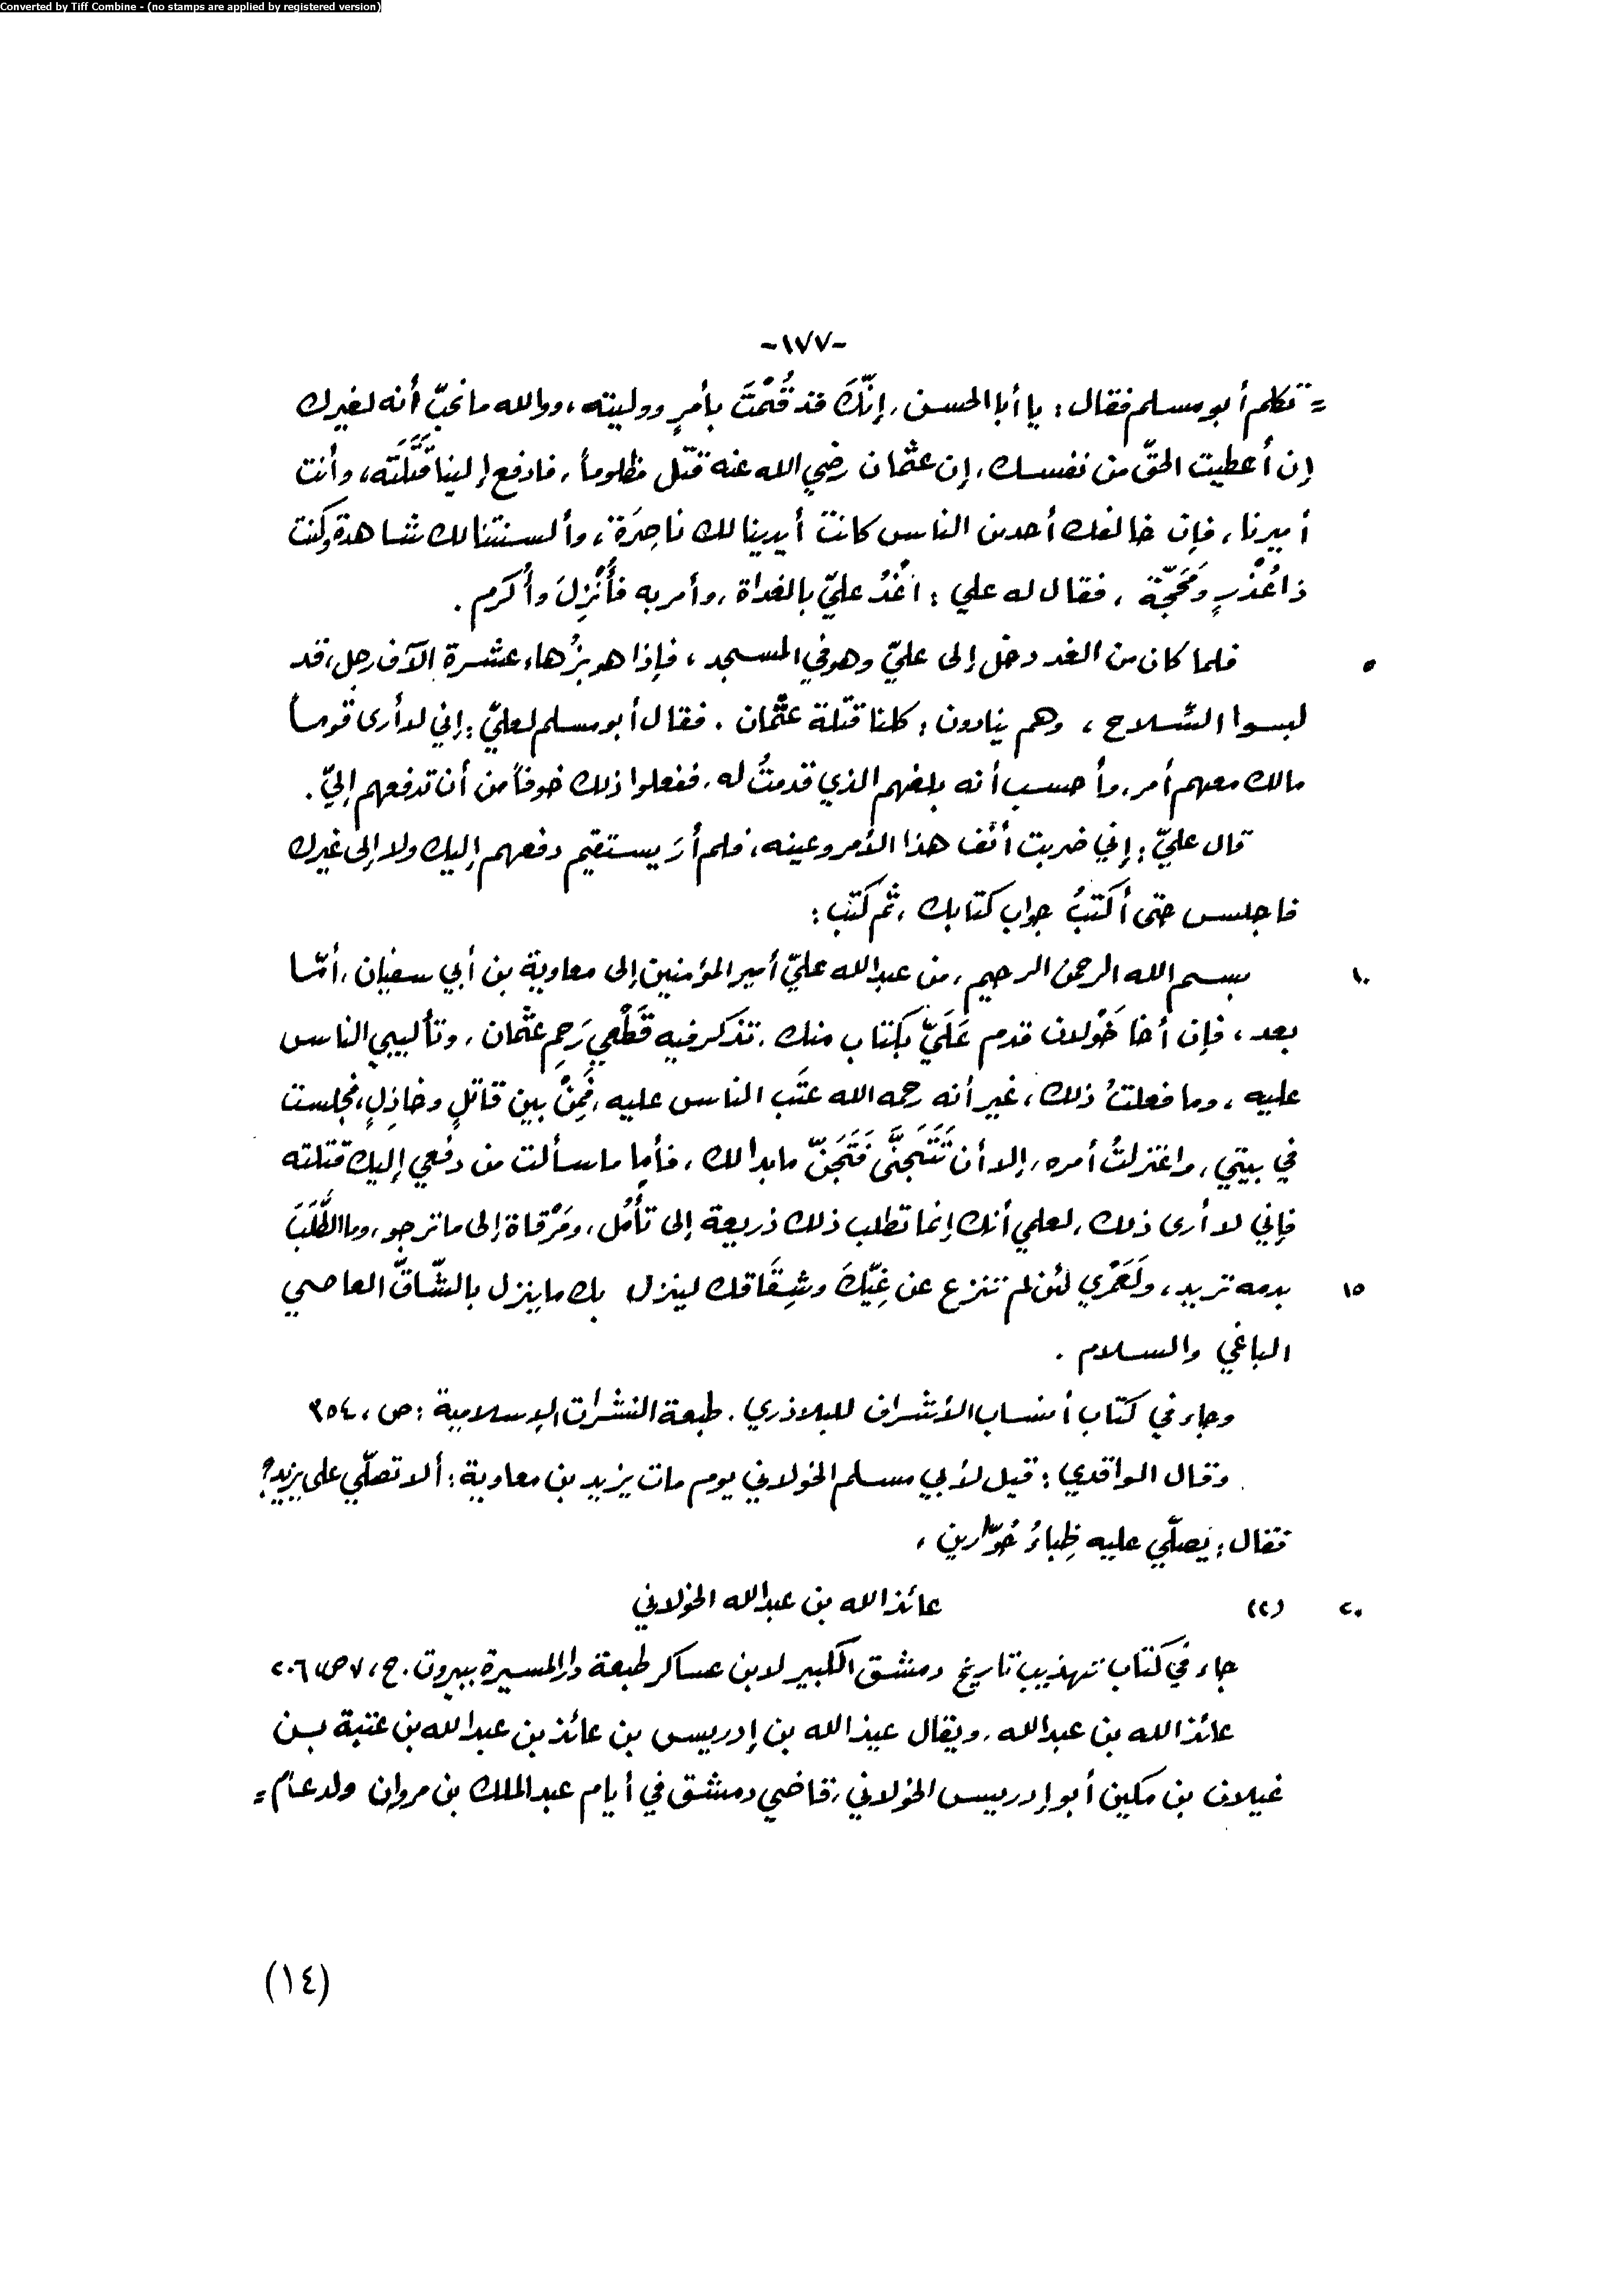 Converted by Tiff Combine - (no stamps are applied by registered version)
-١٧٧-
= تكلم أبو مسلم فقال: يا أبا الحسن، إنّكَ قد قُمْتَ بأمرٍ ووليته، ووالله ما نحبّ أنه لغيرك
إن أعطيت الحقّ من نفسك، إن عثمان رضي الله عنه قتل مظلوماً، فادفع إلينا قَتَلَتَه، وأنت
أميرنا، فإن خالفك أحد من الناس كانت أيدينا لك ناصِرَة، وألسنتنا لك شاهدة وكنت
ذا عُذْرٍ وَحُجَّة، فقال له علي: اغْدُ عليّ بالغداة، وأمر به فأُنْزِلَ وأُكرم.
٥ فلما كان من الغد دخل إلى عليّ وهو في المسجد، فإذا هو بزُهاء عشرة آلاف رجل، قد
لبسوا السّلاح، وهم ينادون: كلنا قتلة عثمان. فقال أبو مسلم لعليّ: إني لأرى قوماً
مالك معهم أمر، وأحسب أنه بلغهم الذي قدمتُ له، ففعلوا ذلك خوفاً من أن تدفعهم إليّ.
قال عليّ: إني ضربت أنف هذا الأمر وعينه، فلم أرَ يستقيم دفعهم إليك ولا إلى غيرك
فاجلس حتى أكتبُ جواب كتابك، ثم كتب:
١٠ بسم الله الرحمن الرحيم، من عبدالله عليّ أمير المؤمنين إلى معاوية بن أبي سفيان، أمّا
بعد، فإن أخا خَوْلان قدم عَلَيّ بكتاب منك، تذكر فيه قَطْعِي رَحِمِ عثمان، وتأليبي الناس
عليه، وما فعلتُ ذلك، غير أنه رحمه الله عَتَب الناس عليه، فَمِنْ بين قاتلٍ وخاذِلٍ، فجلست
في بيتي، واعتزلتُ أمره، إلا أن تَتَجَنَّى فَتَجَنّ ما بدا لك، فأما ما سألت من دفعي إليك قتلته
فإني لا أرى ذلك، لعلمي أنك إنما تطلب ذلك ذريعة إلى تأمُل، ومَرْقاة إلى ما ترجو، وما الطَّلَبَ
١٥ بدمه تريد، ولَعَمْري لئن لم تنزع عن غِيّكَ وشِقَاقك لينزل بك ما ينزل بالشّاقّ العاصي
الباغي والسلام.
وجاء في كتاب أنساب الأشراف للبلاذري. طبعة النشرات الإسلامية: ص، ٣٥٤
وقال الواقدي: قيل لأبي مسلم الخولاني يوم مات يزيد بن معاوية: ألا تصلّي على يزيد؟
فقال: يَصلّي عليه ظِباءُ حُوّارين،
٢٠ (٢) عائذالله بن عبدالله الخولاني
جاء في كتاب تهذيب تاريخ دمشق الكبير لابن عساكر طبعة دار المسيرة ببيروت. ج، ٧ ص، ٢٠٦
عائذالله بن عبدالله، ويقال عيذالله بن إدريس بن عائذ بن عبدالله بن عتبة بن
غيلان بن مكين أبو إدريس الخولاني، قاضي دمشق في أيام عبدالملك بن مروان ولد عام =
(١٤)